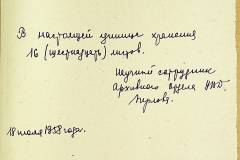 В настоящей единице хранения
16 (шестнадцать) листов.
Научный сотрудник
Архивного отдела
18 июля 1958 года.